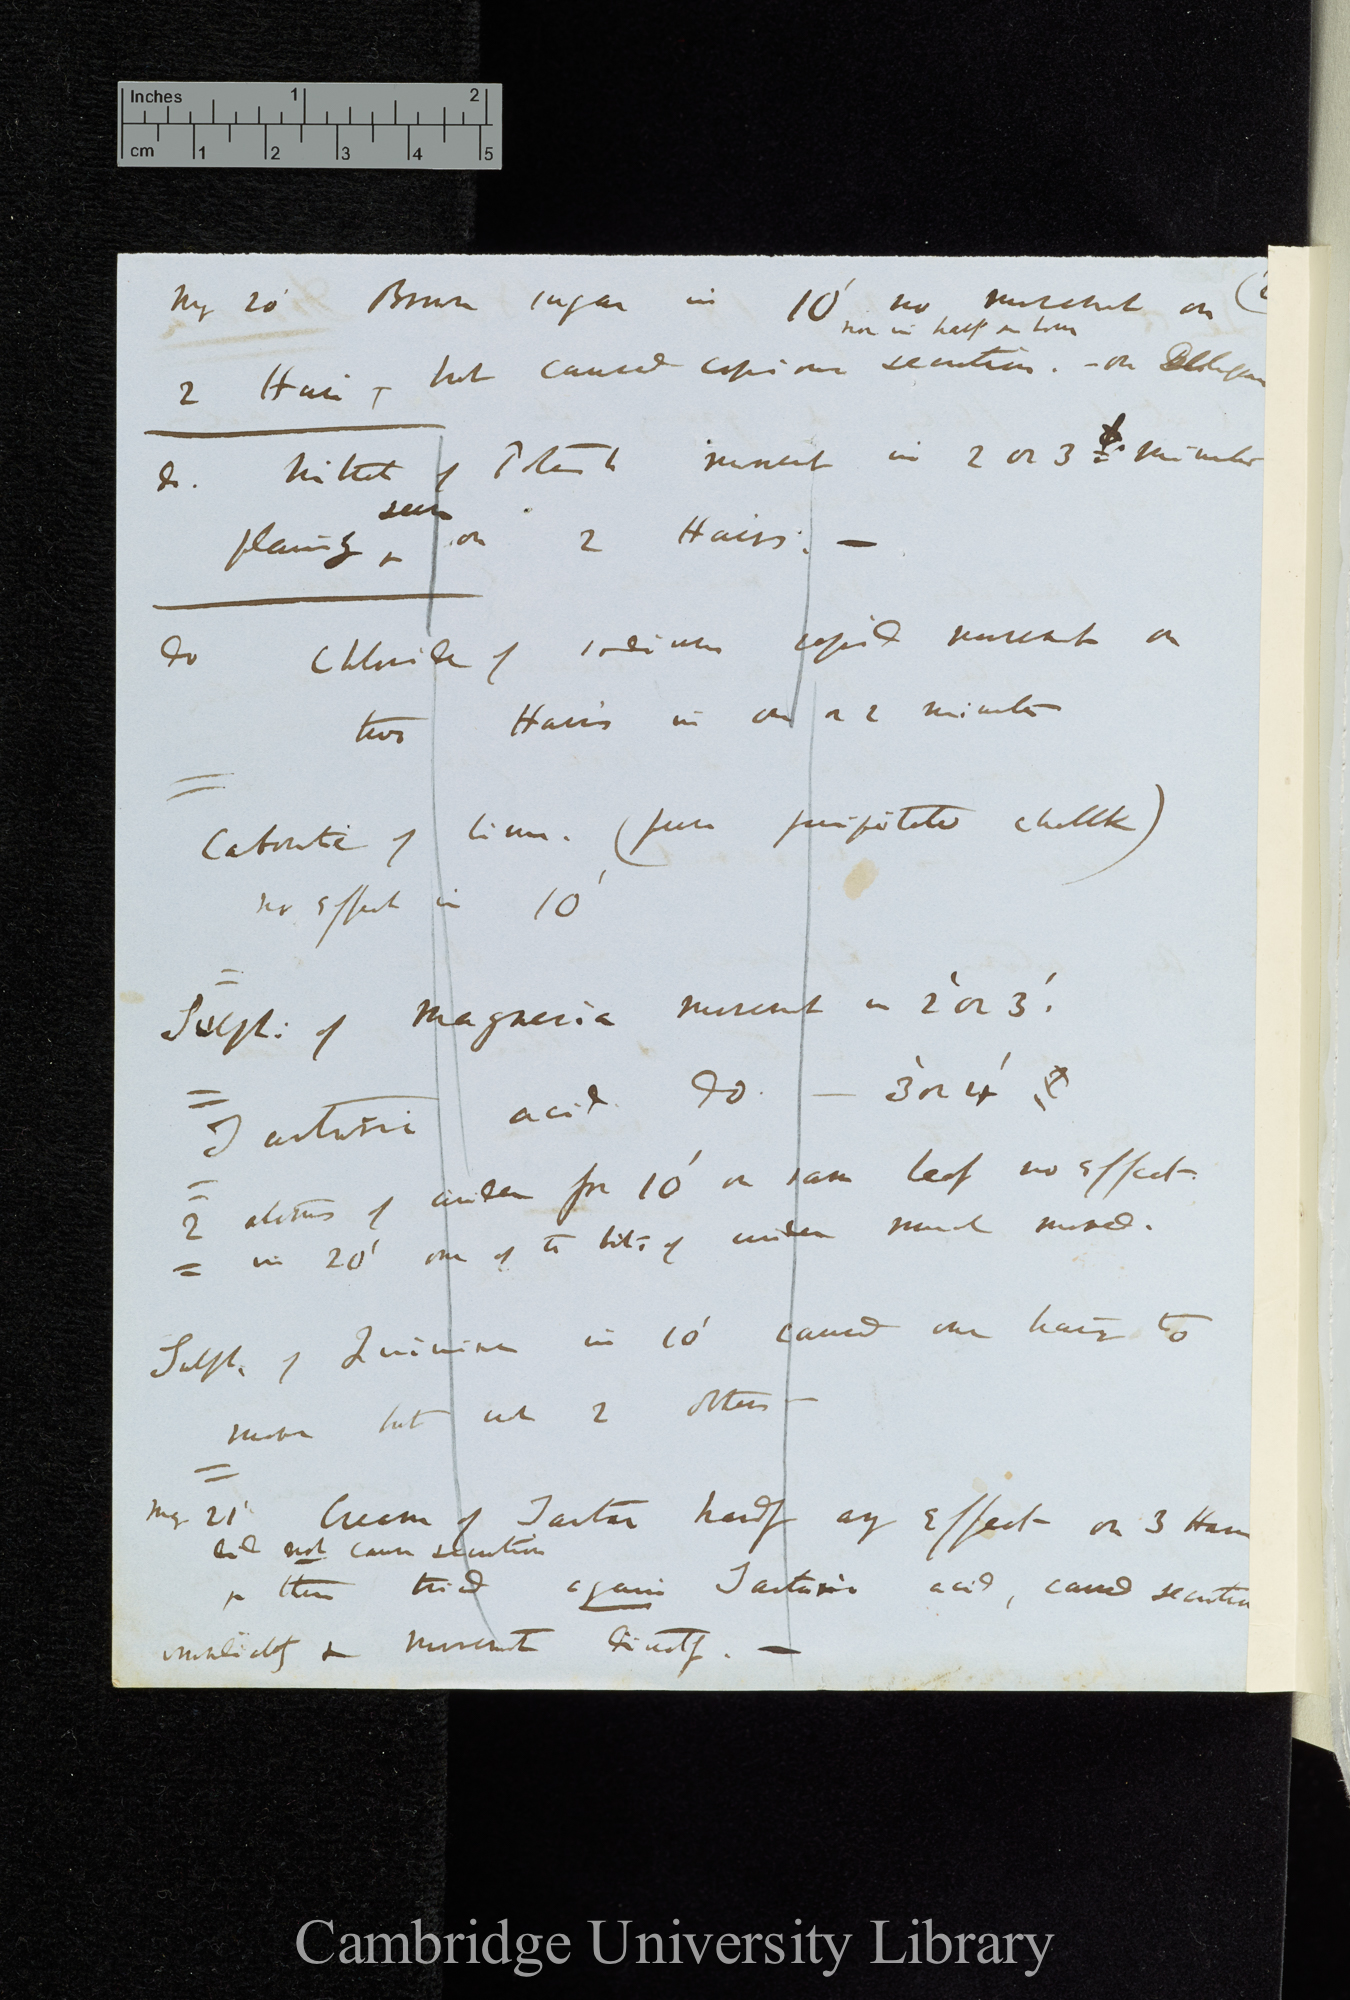 Inches 1 2
cm 1 2 3 4 5
May 20' Brown sugar in 10' no movement on (2
nor in half an hour
2 Hairs, but caused copious secretion. - on
do. Nitrate of Potash movement in 2 or 3 minutes
seen
plainly on 2 Hairs. —
do Chloride of sodium rapid movement on
two Hairs in one or 2 minutes
Carbonate of lime. (pure precipitated chalk)
no effect in 10'
Sulph: of Magnesia movement in 2' or 3'.
Tartaric acid. do. — 3' or 4'
2 atoms of cinder for 10' on same leaf no effect.
in 20' one of the bits of cinder much moved.
Sulph. of Quinine in 10' caused one hair to
move but not 2 others —
May 21' Cream of Tartar hardly any effect on 3 Hairs
did not cause secretion
& then tried again Tartaric acid, caused secretion
immediately & movement directly. —
Cambridge University Library